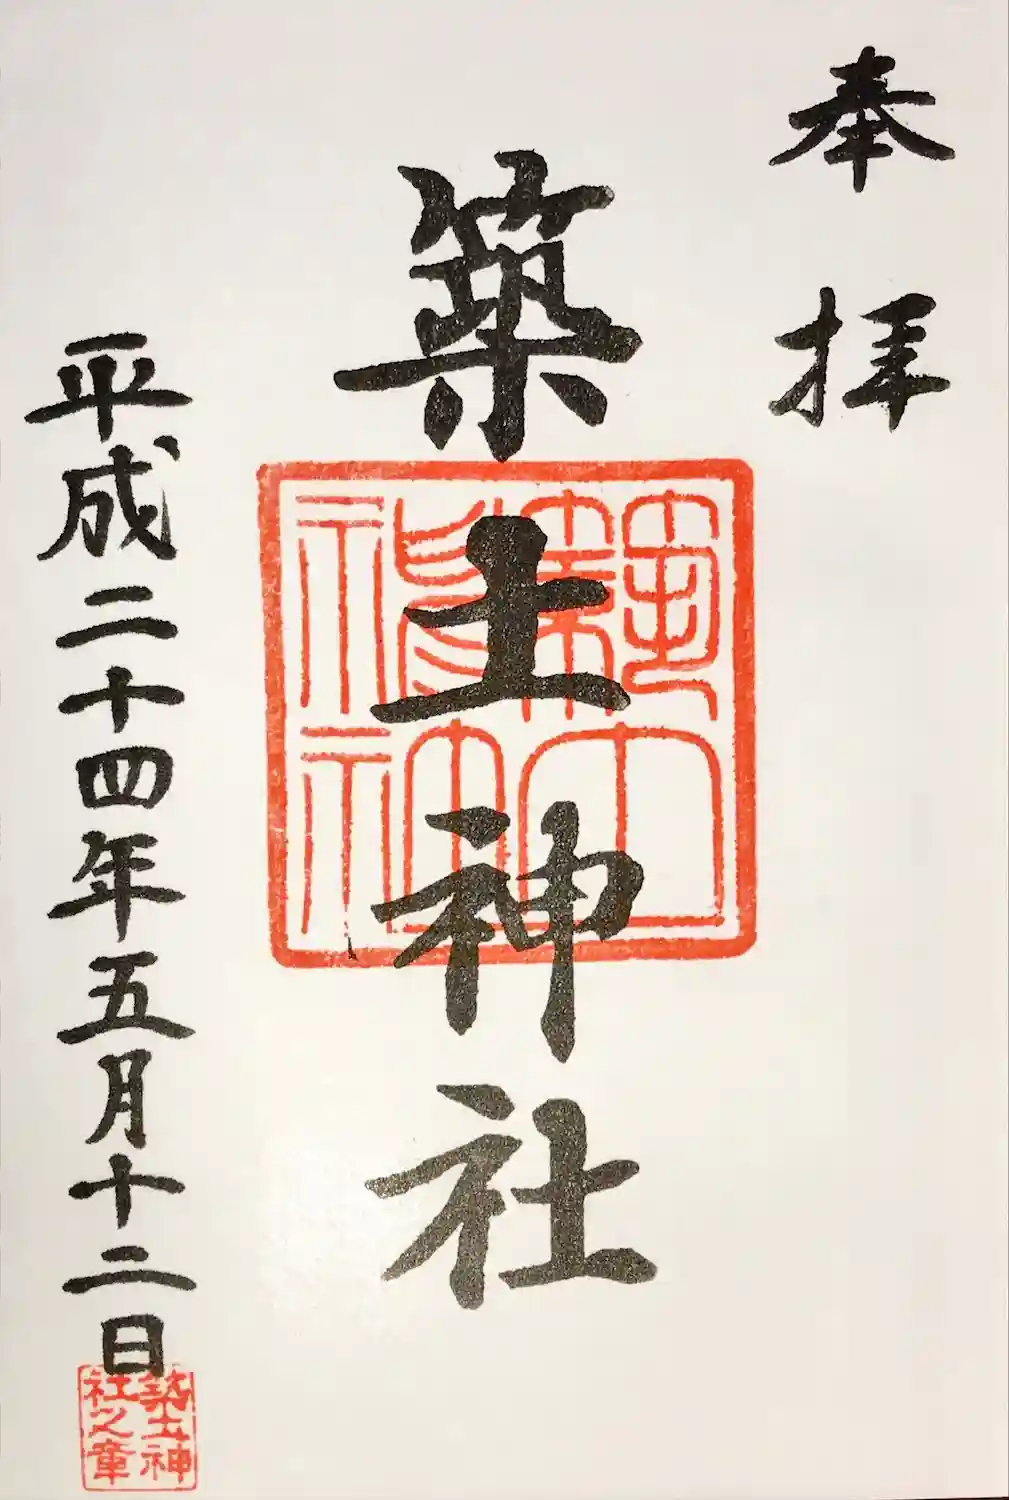 奉拝
築土神社
平成二十四年五月十二日
築土神
社之章